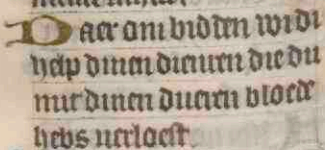 Daer om bidden wi di
help dinen dienren die du
mit dinen dueren bloede
hebs verloest